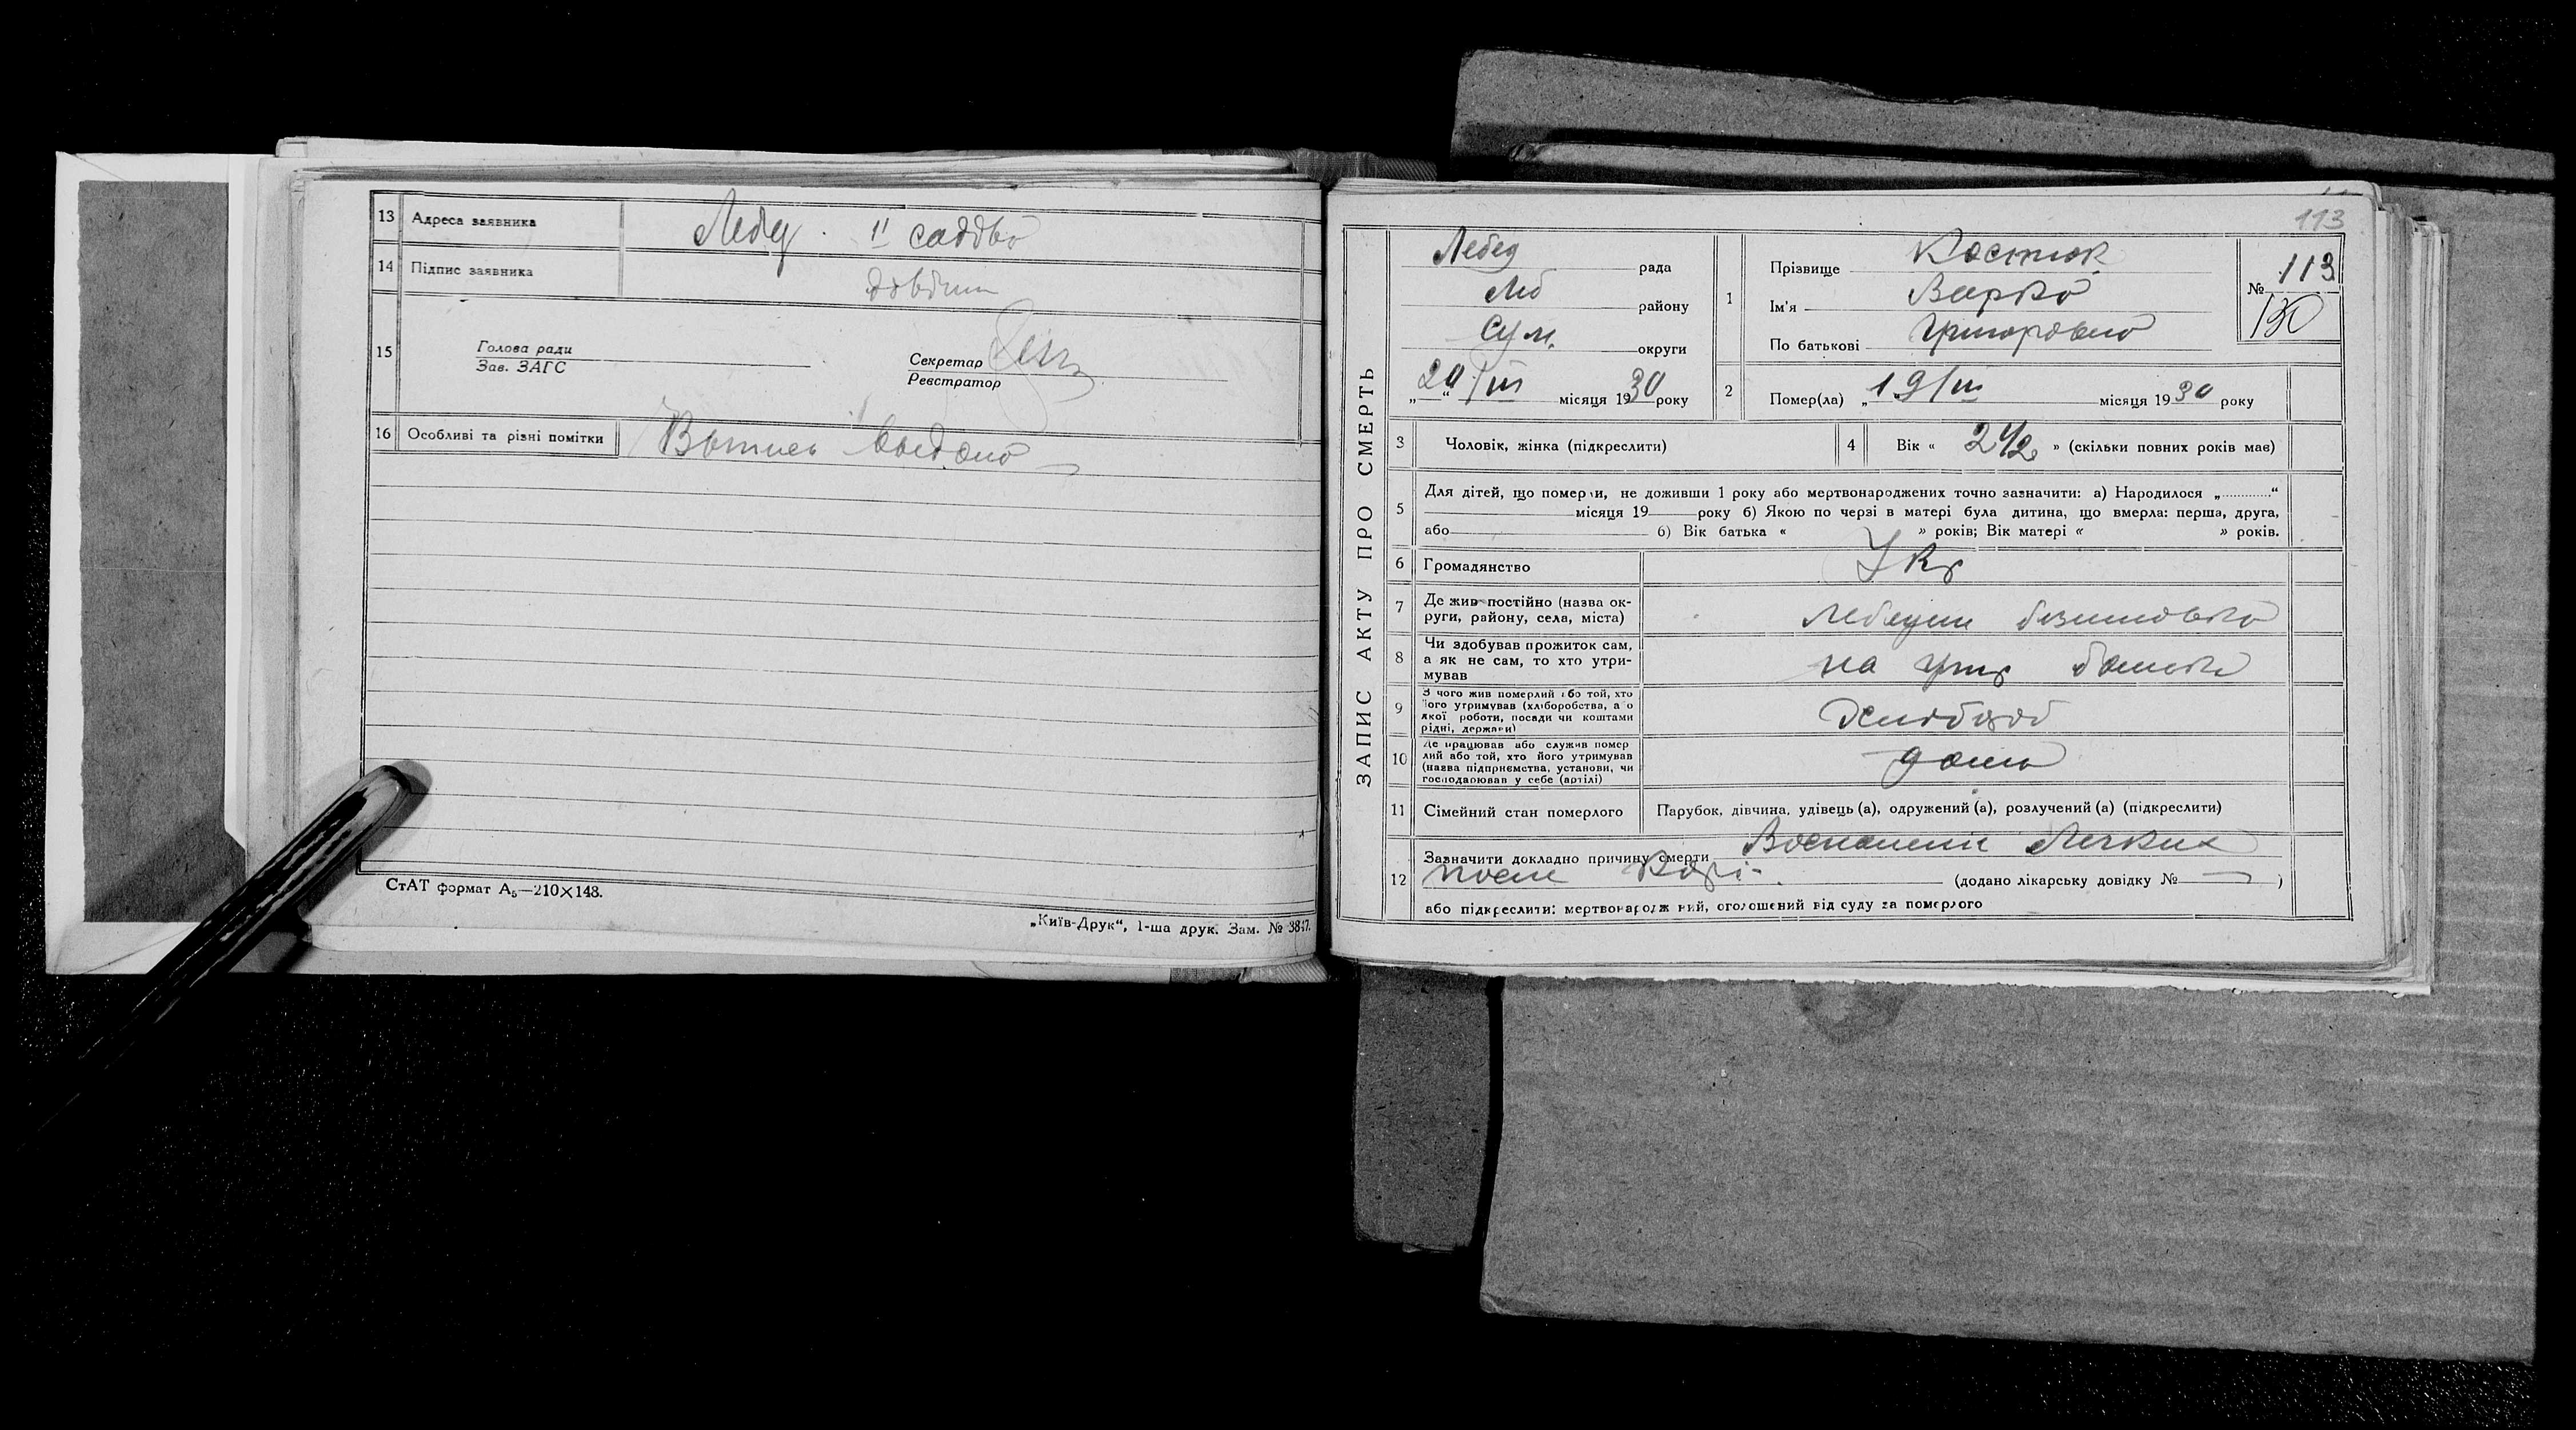 13 Адреса заявника Лебед. II
14 Підпис заявника
15 Голова ради
Зав. ЗАГС
Секретар
Реєстратор
16 Особливі та різні помітки Выпись выдано
СтАТ формат А₅—210×148.
„Київ-Друк“, 1-ша друк. Зам. № 3847.
113
ЗАПИС АКТУ ПРО СМЕРТЬ
Лебед рада
Леб району
Сум. округи
„20“/III місяця 1930 року
1 Прізвище Костюк
Ім'я Варка
По батькові Григоровна
№ 113
130
2 Помер(ла) „19/III місяця 1930 року
3 Чоловік, жінка (підкреслити)
4 Вік « 2 1/2 » (скільки повних років має)
5 Для дітей, що померли, не доживши 1 року або мертвонароджених точно зазначити: а) Народилося „............“
місяця 19 року б) Якою по черзі в матері була дитина, що вмерла: перша, друга,
або б) Вік батька « » років; Вік матері « » років.
6 Громадянство Укр
7 Де жив постійно (назва ок-
руги, району, села, міста) Лебедин
8 Чи здобував прожиток сам,
а як не сам, то хто утри-
мував на утр батька
9 З чого жив померлий або той, хто
його утримував (хліборобства, або
якої роботи, посади чи коштами
рідні, держави) Хлібороб
10 Де працював або служив помер
лий або той, хто його утримував
(назва підприємства, установи, чи
господарював у себе (артілі) дома
11 Сімейний стан померлого Парубок, дівчина, удівець (а), одружений (а), розлучений (а) (підкреслити)
12 Зазначити докладно причину смерти Воспаление Легких
после Корі. (додано лікарську довідку № — )
або підкреслити: мертвонароджений, оголошений від суду за померлого